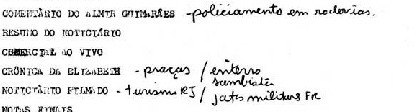 COMENTÁRIO DO ALMTE GUIMARÃES - policiamento em rodovias.
RESUMO DO NOTICIÁRIO
COMERCIAL AO VIVO
CRÔNICA DA ELIZABETH - praças / enterro sambista
NOTICIÁRIO FILMADO - turismo RJ / jatos militares FR
NOTAS FINAIS